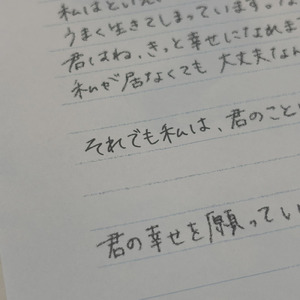 私はといえ
うまく生きてしまっています。な
君はね、きっと幸せになれま
私が居なくても 大丈夫なん
それでも私は、君のこと
君の幸せを願ってい